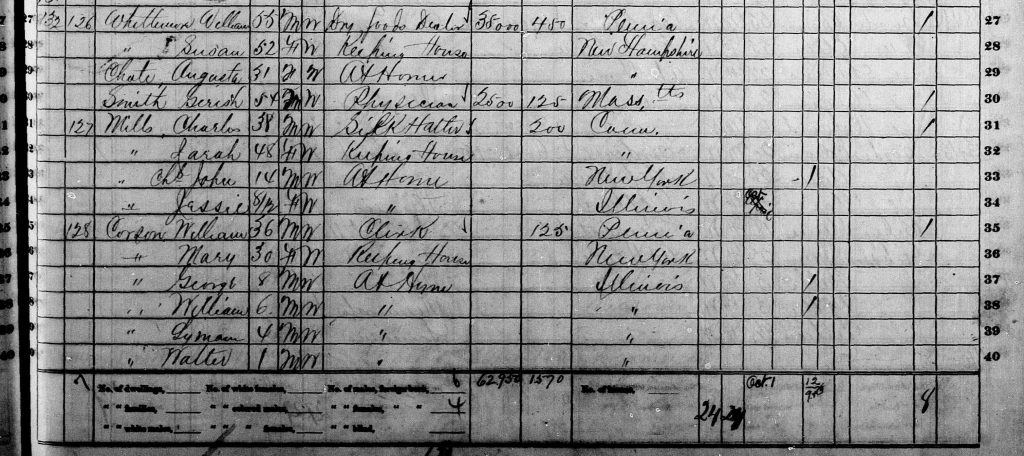 27 132 126 William 55 M W Dry Goods Dealer 35000 450 Penn'a 1 27
" Susan 52 F W Keeping House New Hampshire 28
Augusta 31 F W At Home " 29
Smith Gerish 54 M W Physician 2500 125 Mass.tts 1 30
127 Mills Charles 38 M W Silk Hatter 200 Conn. 1 31
" Sarah 48 F W Keeping House " 32
" John 14 M W At Home New York 1 33
" Jessie 8/12 F W " Illinois 34
128 Corson William 36 M W Clerk 125 Penn'a 1 35
" Mary 30 F W Keeping House New York 36
" George 8 M W At Home Illinois 1 37
" William 6 M W " " 1 38
" Lyman 4 M W " " 39
" Walter 1 M W " " 40
7 No. of dwellings, No. of white females, No. of males, foreign born, 6 62950 1570 No. of insane, Oct. 1 12
" " families, " " colored males, " " females, " " 4 24 24 8
" " white males, " " females, " " blind,